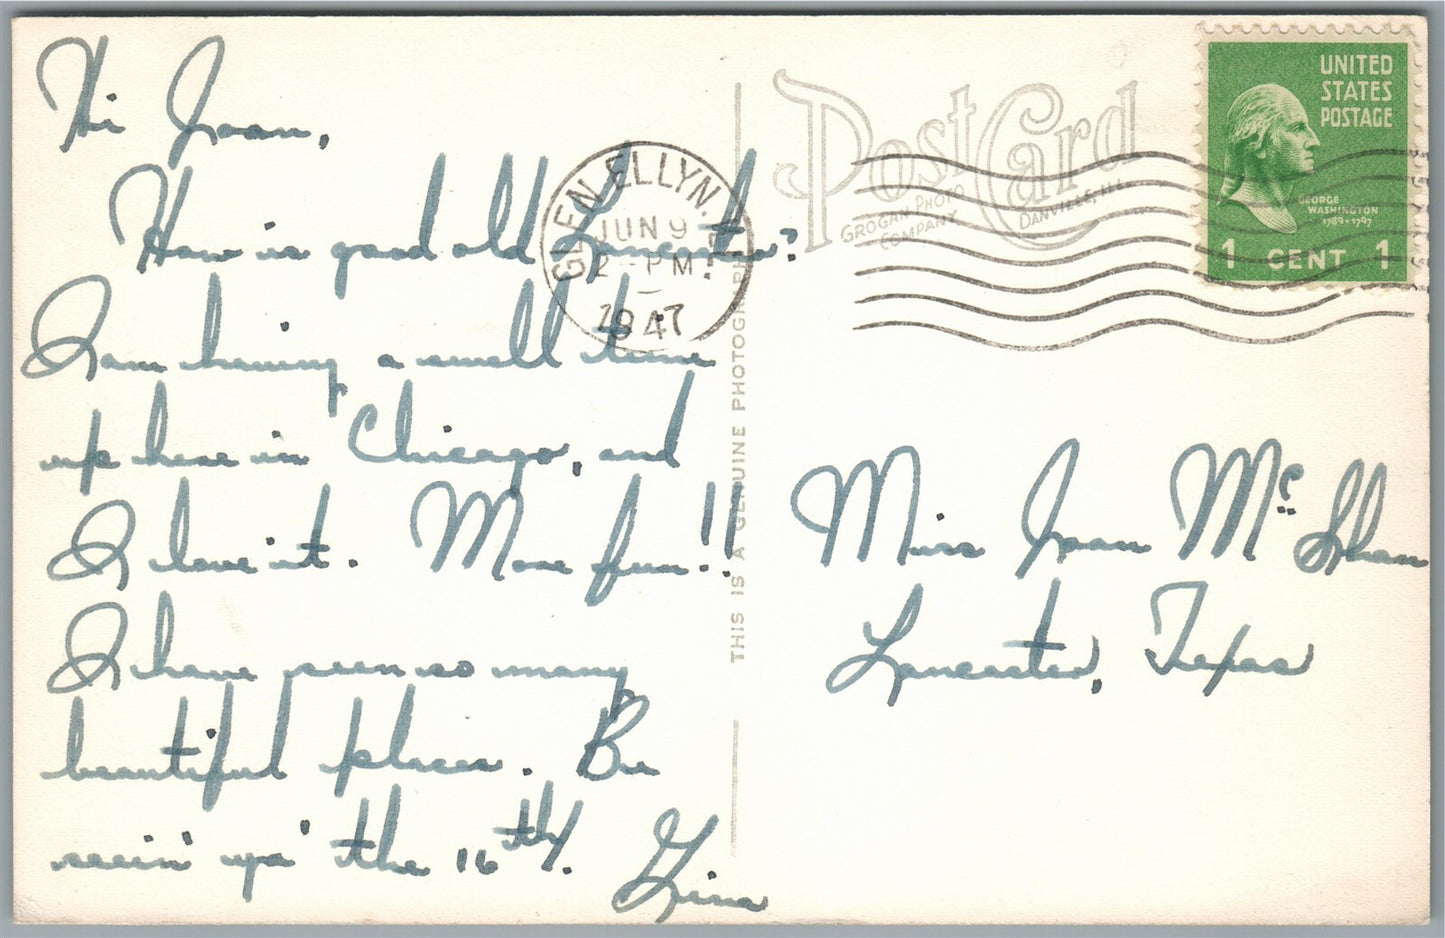 Hi Joan,
How is good old Lancaster?
I am having a swell time
up here in Chicago, and
I love it. More fun!!
I have seen so many
beautiful places. Be
seein' ya' the 16th.
Gina
GLEN ELLYN.
JUN 9
2 - PM
1947
THIS IS A GENUINE PHOTOGRAPH
Post Card
GROGAN PHOTO
COMPANY
DANVILLE, ILL.
UNITED
STATES
POSTAGE
GEORGE
WASHINGTON
1789-1797
1 CENT 1
Miss Joan Mc
Lancaster, Texas